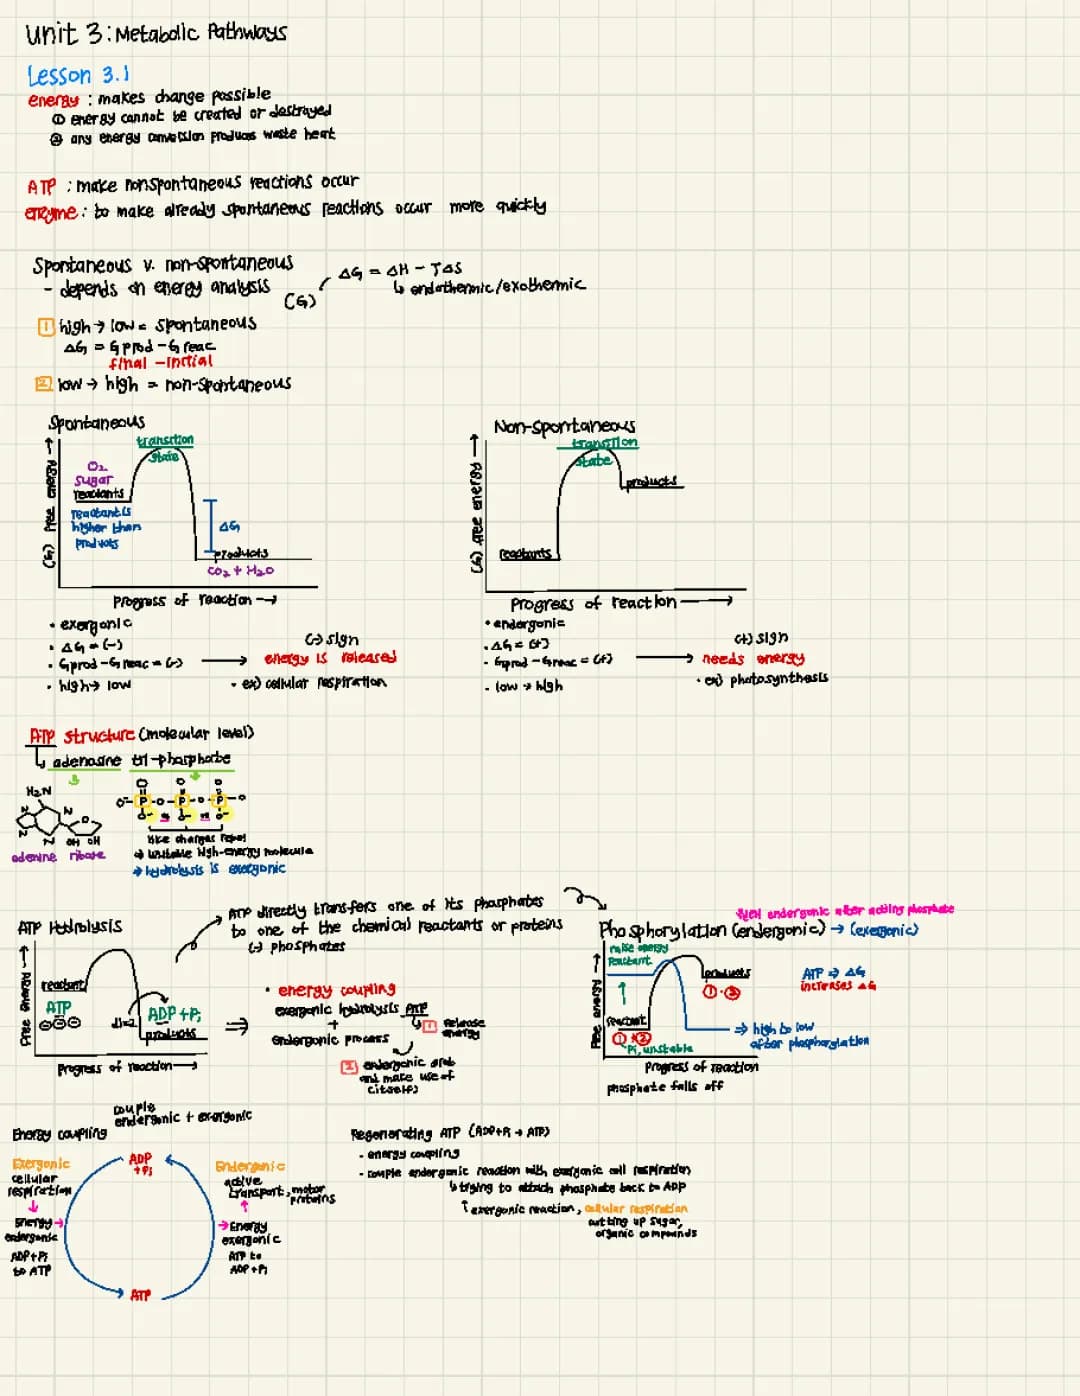 Unit 3: Metabolic Pathways
Lesson 3.1
energy : makes change possible
① energy cannot be created or destroyed
② any energy conversion produces waste heat
ATP : make nonspontaneous reactions occur
enzyme : to make already spontaneous reactions occur more quickly
Spontaneous v. non-spontaneous
- depends on energy analysis
(G)
ΔG = ΔH - TΔS
↳ endothermic/exothermic
1 high → low = spontaneous
ΔG = G prod - G reac
final - initial
2 low → high = non-spontaneous
Spontaneous
(G) free energy →
transition
state
O₂
sugar
reactants
reactants
higher than
products
ΔG
products
CO₂ + H₂O
Progress of reaction →
• exergonic
• ΔG = (-)
• Gprod - Greac = (-)
• high → low
(-) sign
→ energy is released
• ex) cellular respiration
Non-spontaneous
(G) free energy →
transition
state
products
reactants
Progress of reaction →
• endergonic
• ΔG = (+)
- Gprod - Greac = (+)
- low → high
(+) sign
→ needs energy
• ex) photosynthesis
ATP structure (molecular level)
↳ adenosine tri-phosphate
H₂N
N
OH OH
adenine ribose
O⁻ P O P O P O
like charges repel
→ unstable high-energy molecule
→ hydrolysis is exergonic
ATP Hydrolysis
Free energy →
reactant
ATP
⊖⊖⊖
ADP + Pi
products
Progress of reaction →
→ ATP directly transfers one of its phosphates
to one of the chemical reactants or proteins
(-) phosphates
• energy coupling
exergonic hydrolysis ATP
+
endergonic process
1 release
energy
2 endergonic grab
and make use of
Phosphorylation (endergonic) → (exergonic)
endergonic after adding phosphate
raise energy
reactant
Free energy →
reactant
① + ②
Pi, unstable
products
① • ②
ATP ⇒ ΔG
increases ΔG
⇒ high to low
after phosphorylation
Progress of reaction
phosphate falls off
Energy coupling
couple
endergonic + exergonic
Exergonic
cellular
respiration
↓
energy →
endergonic
ADP + Pi
to ATP
ADP
+ Pi
ATP
Endergonic
active
transport, motor
proteins
↑
→ Energy
exergonic
ATP to
ADP + Pi
Regenerating ATP (ADP + Pi → ATP)
- energy coupling
- couple endergonic reaction with exergonic cell respiration
↳ trying to attach phosphate back to ADP
↑ exergonic reaction, cellular respiration
cutting up sugar,
organic compounds